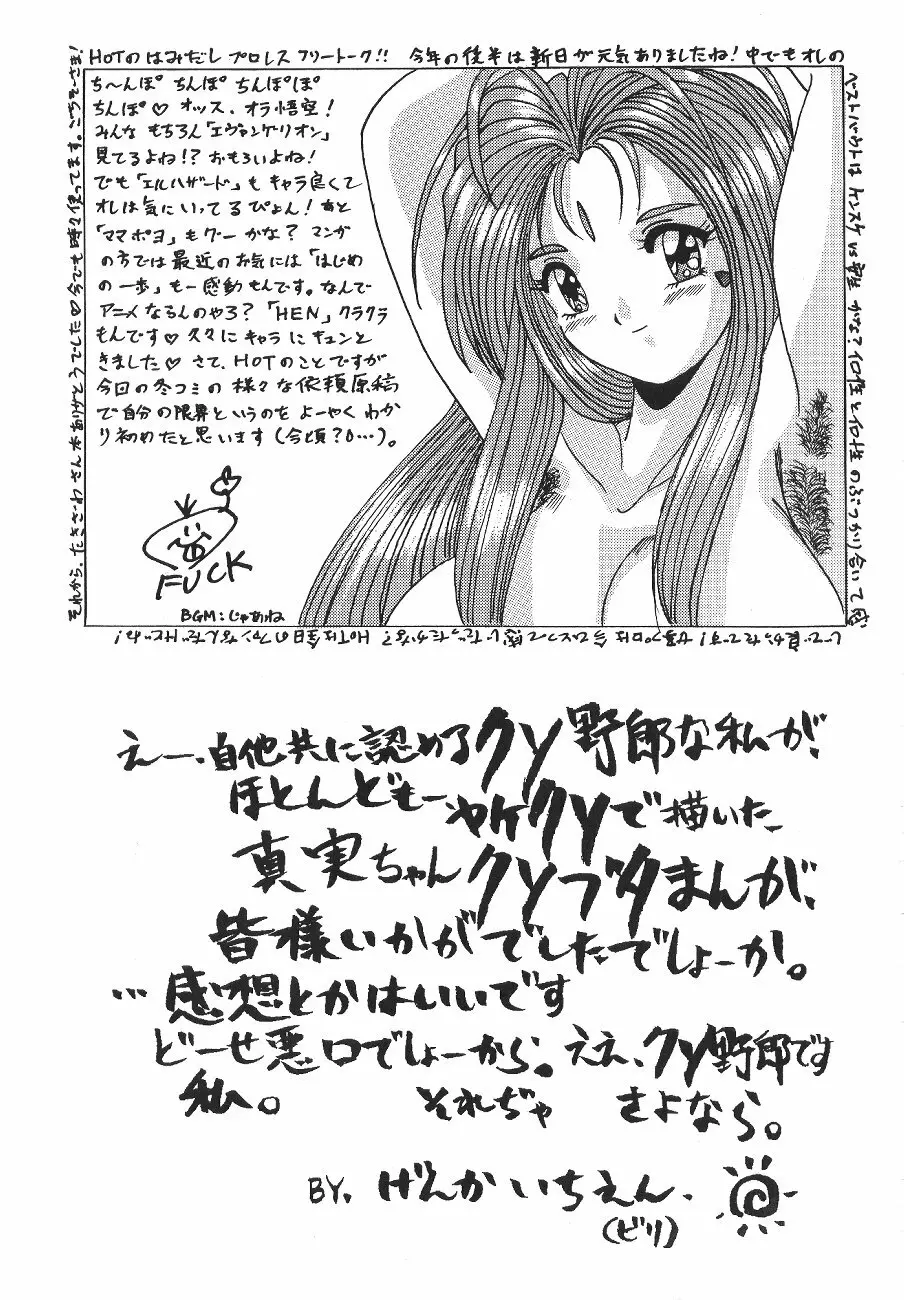 HOTのはみだしプロレスフリートーク!! 今年の後半は新日が元気ありましたね!中でもオレの
ベストバウトは
ち〜んぽ ちんぽ ちんぽぽ
ちんぽ♡ オッス、オラ悟空!
みんなもちろん「エヴァンゲリオン」
見てるよね!?おもろいよね!
でも「エルハザード」もキャラ良くて
オレは気にいってるぴょん!あと
「ママポヨ」もグーかな?マンガ
の方では最近のお気には「はじめ
の一歩」も一感動もんです。なんで
アニメなるんのやろ?「HEN」クラクラ
もんです♡久々にキャラにキュンと
きました♡さて、HOTのことですが
今回の冬コミの様々な依頼原稿
で自分の限界というのをよーやくわか
り初めたと思います(今頃?0…)。
FUCK
BGM:じゃあね
それから、たきざわさん本ありがとうでした♡今でも時々使ってます。ごちそーさま!
えー、自他共に認めるクソ野郎な私が、
ほとんどもーヤケクソで描いた、
真実ちゃんクソブタまんが、
皆様いかがでしたでしょーか。
…感想とかはいいです
どーせ悪口でしょーから。ええ、クソ野郎です
私。 それぢゃ さよなら。
BY. げんかいちえん.
(ビリ)